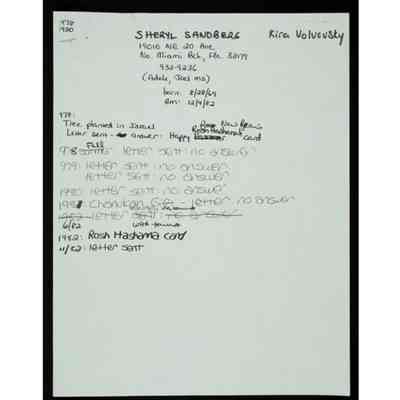 978
1980
SHERYL SANDBERG Kira Volvovsky
19010 NE 20 Ave
No. Miami Bch, Fla. 33179
932-9236
(Adele, Joel MD)
born: 8/28/69
Bm: 12/4/82
978:
Tree planted in Israel New Years
Letter sent - answer: Happy Rosh Hashanah card
Fall
978 letter sent: no answer
979: letter sent: no answer
letter sent: no answer
1980 letter sent: no answer
1981 Chanukah - letter no answer
1982 letter sent: no answer
6/82
1982: Rosh Hashana card
11/82: letter sent